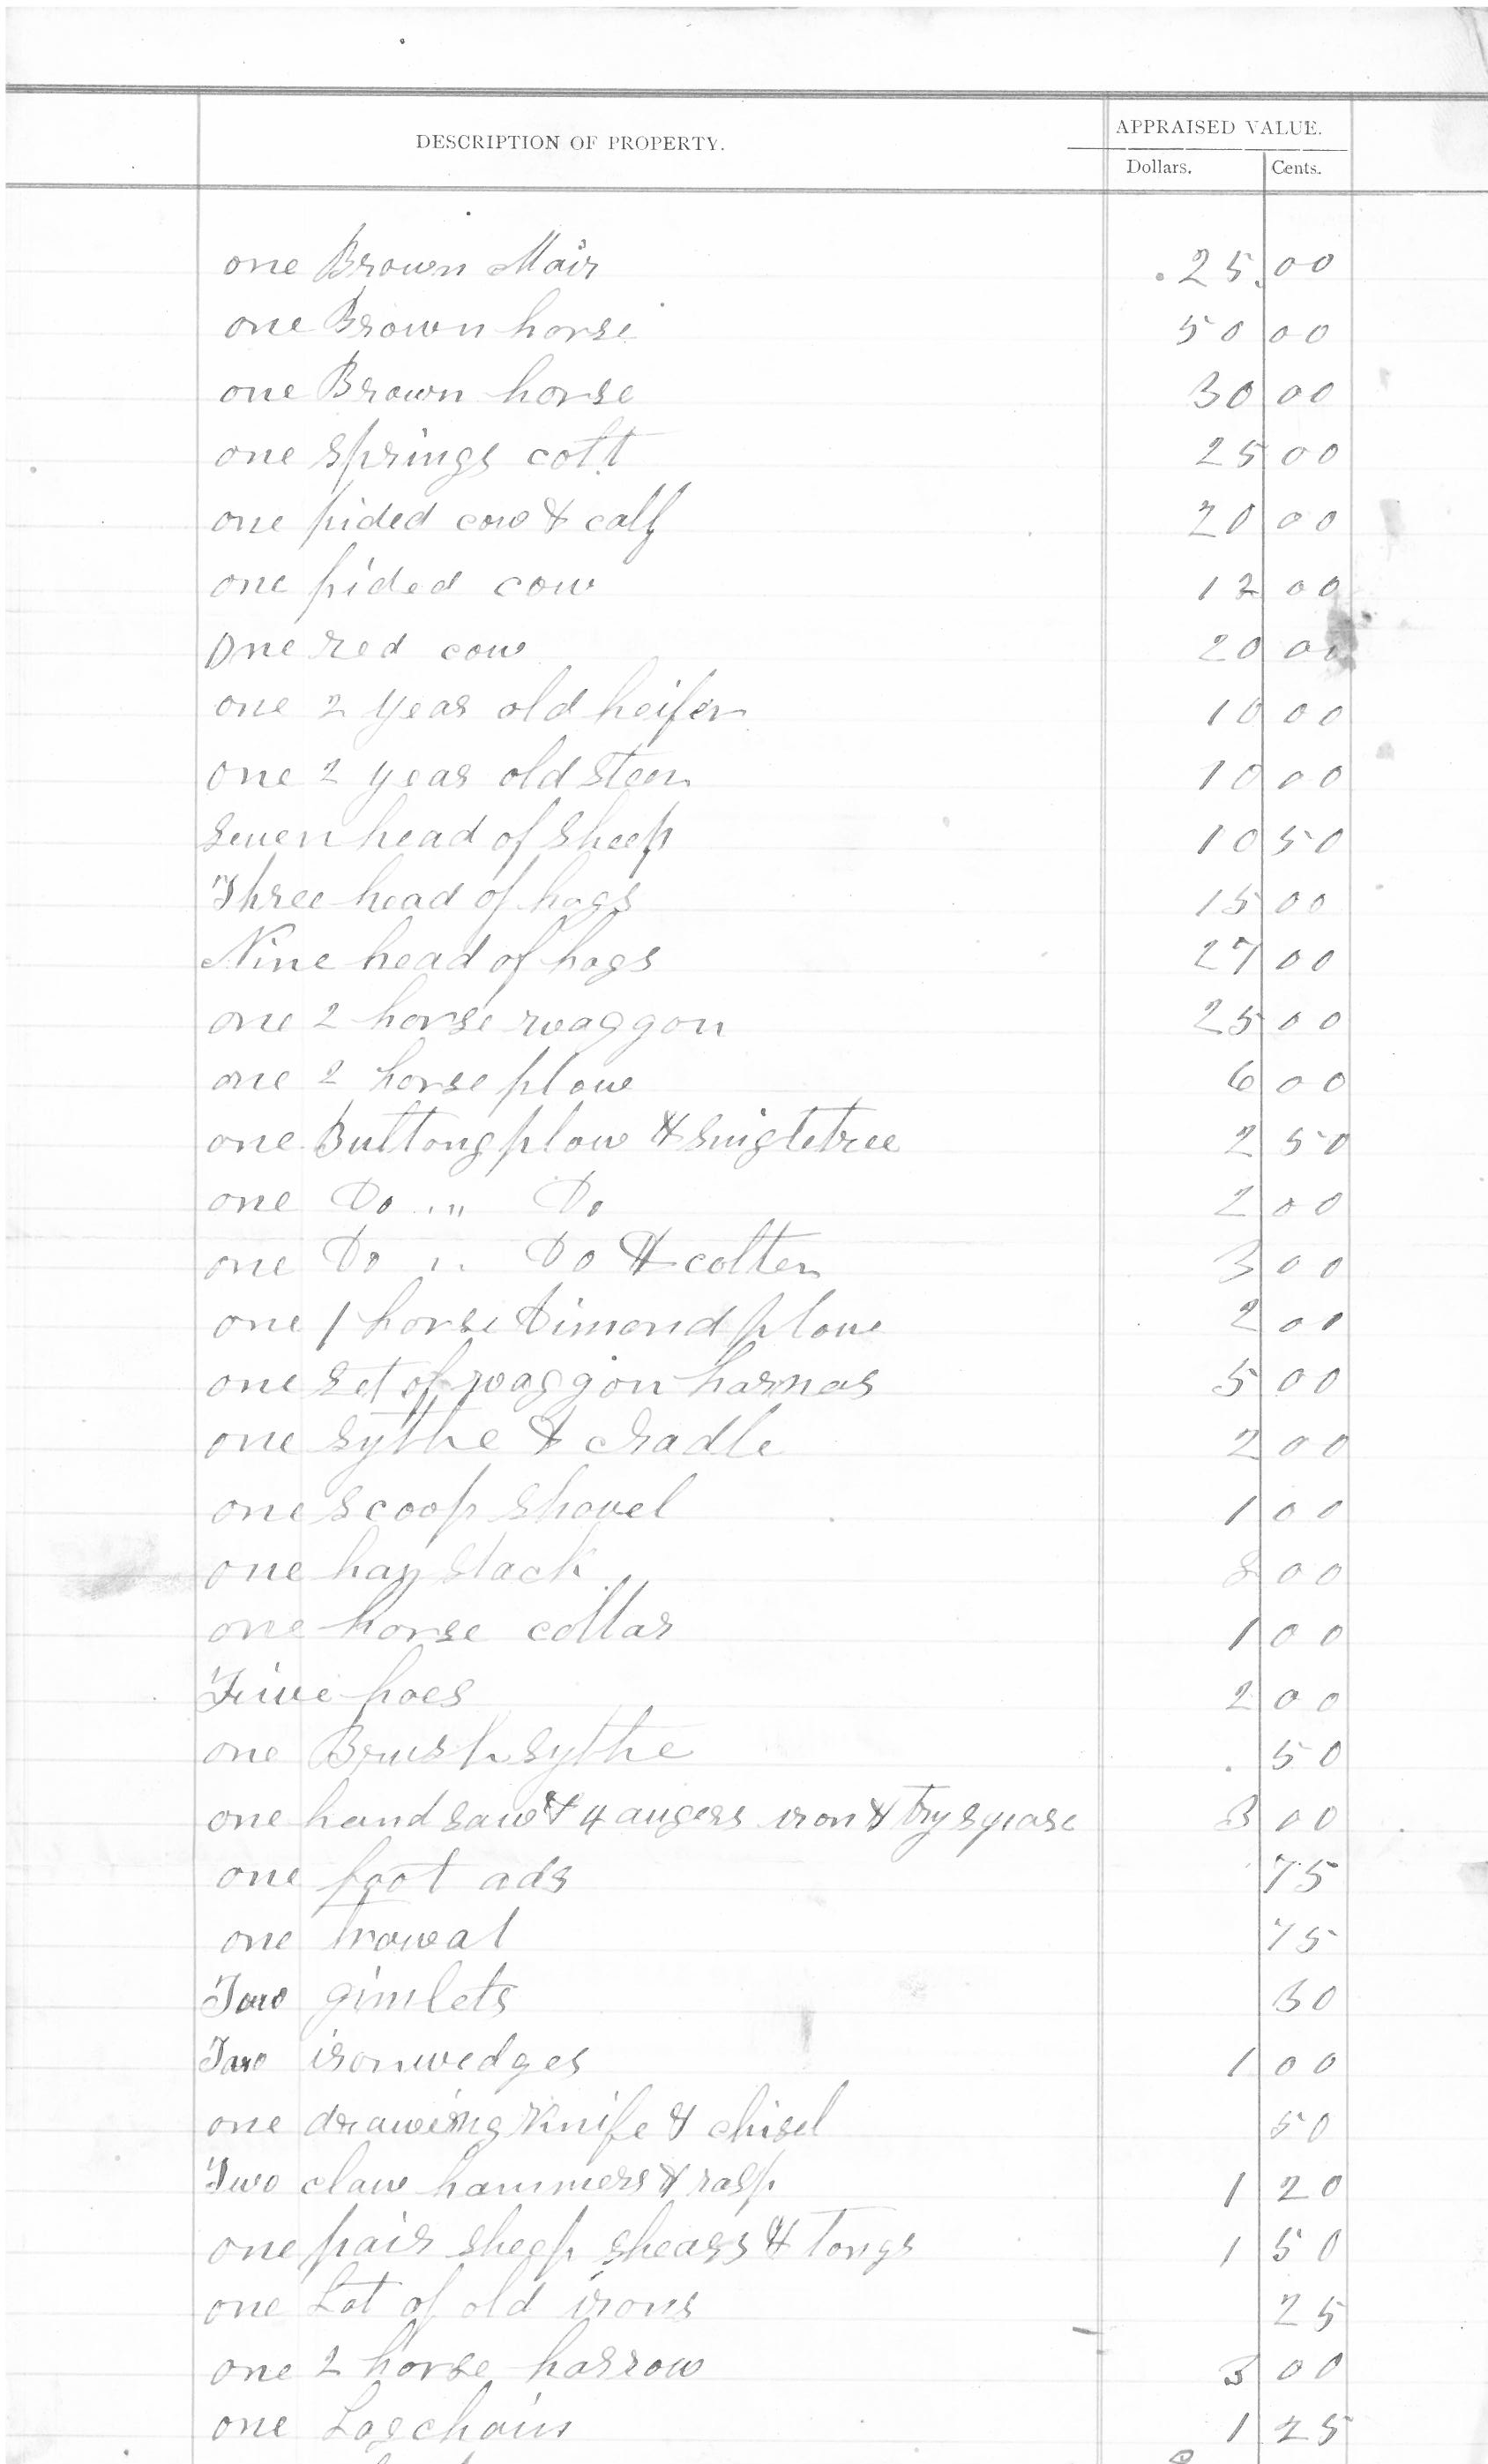 DESCRIPTION OF PROPERTY. APPRAISED VALUE.
Dollars. Cents.
one Brown Mair 25.00
one Brown horse 50 00
one Brown horse 30 00
one springs colt 25 00
one pided cow & calf 20 00
one pided cow 12 00
One red cow 20 00
one 2 year old heifer 10 00
one 2 year old steer 10 00
Seven head of sheep 10 50
Three head of hogs 15 00
Nine head of hogs 27 00
one 2 horse waggon 25 00
one 2 horse plow 6 00
one Bultong plow & singletree 2 50
one Do " Do 2 00
one Do " Do & colter 3 00
one 1 horse Dimond plow 2 00
one set of waggon harnas 5 00
one sythe & cradle 2 00
one scoop shovel 1 00
one hay stack 8 00
one horse collar 1 00
Five hoes 2 00
one Brush sythe 50
one hand saw & 4 augers iron & try square 3 00
one foot ads 75
one trowal 75
Two gimlets 30
Two iron wedges 1 00
one drawing Knife & chisel 50
Two claw hammers & rasp 1 20
one pair sheep shears & tongs 1 50
one Lot of old irons 25
one 2 horse harrow 3 00
one Log chain 1 25